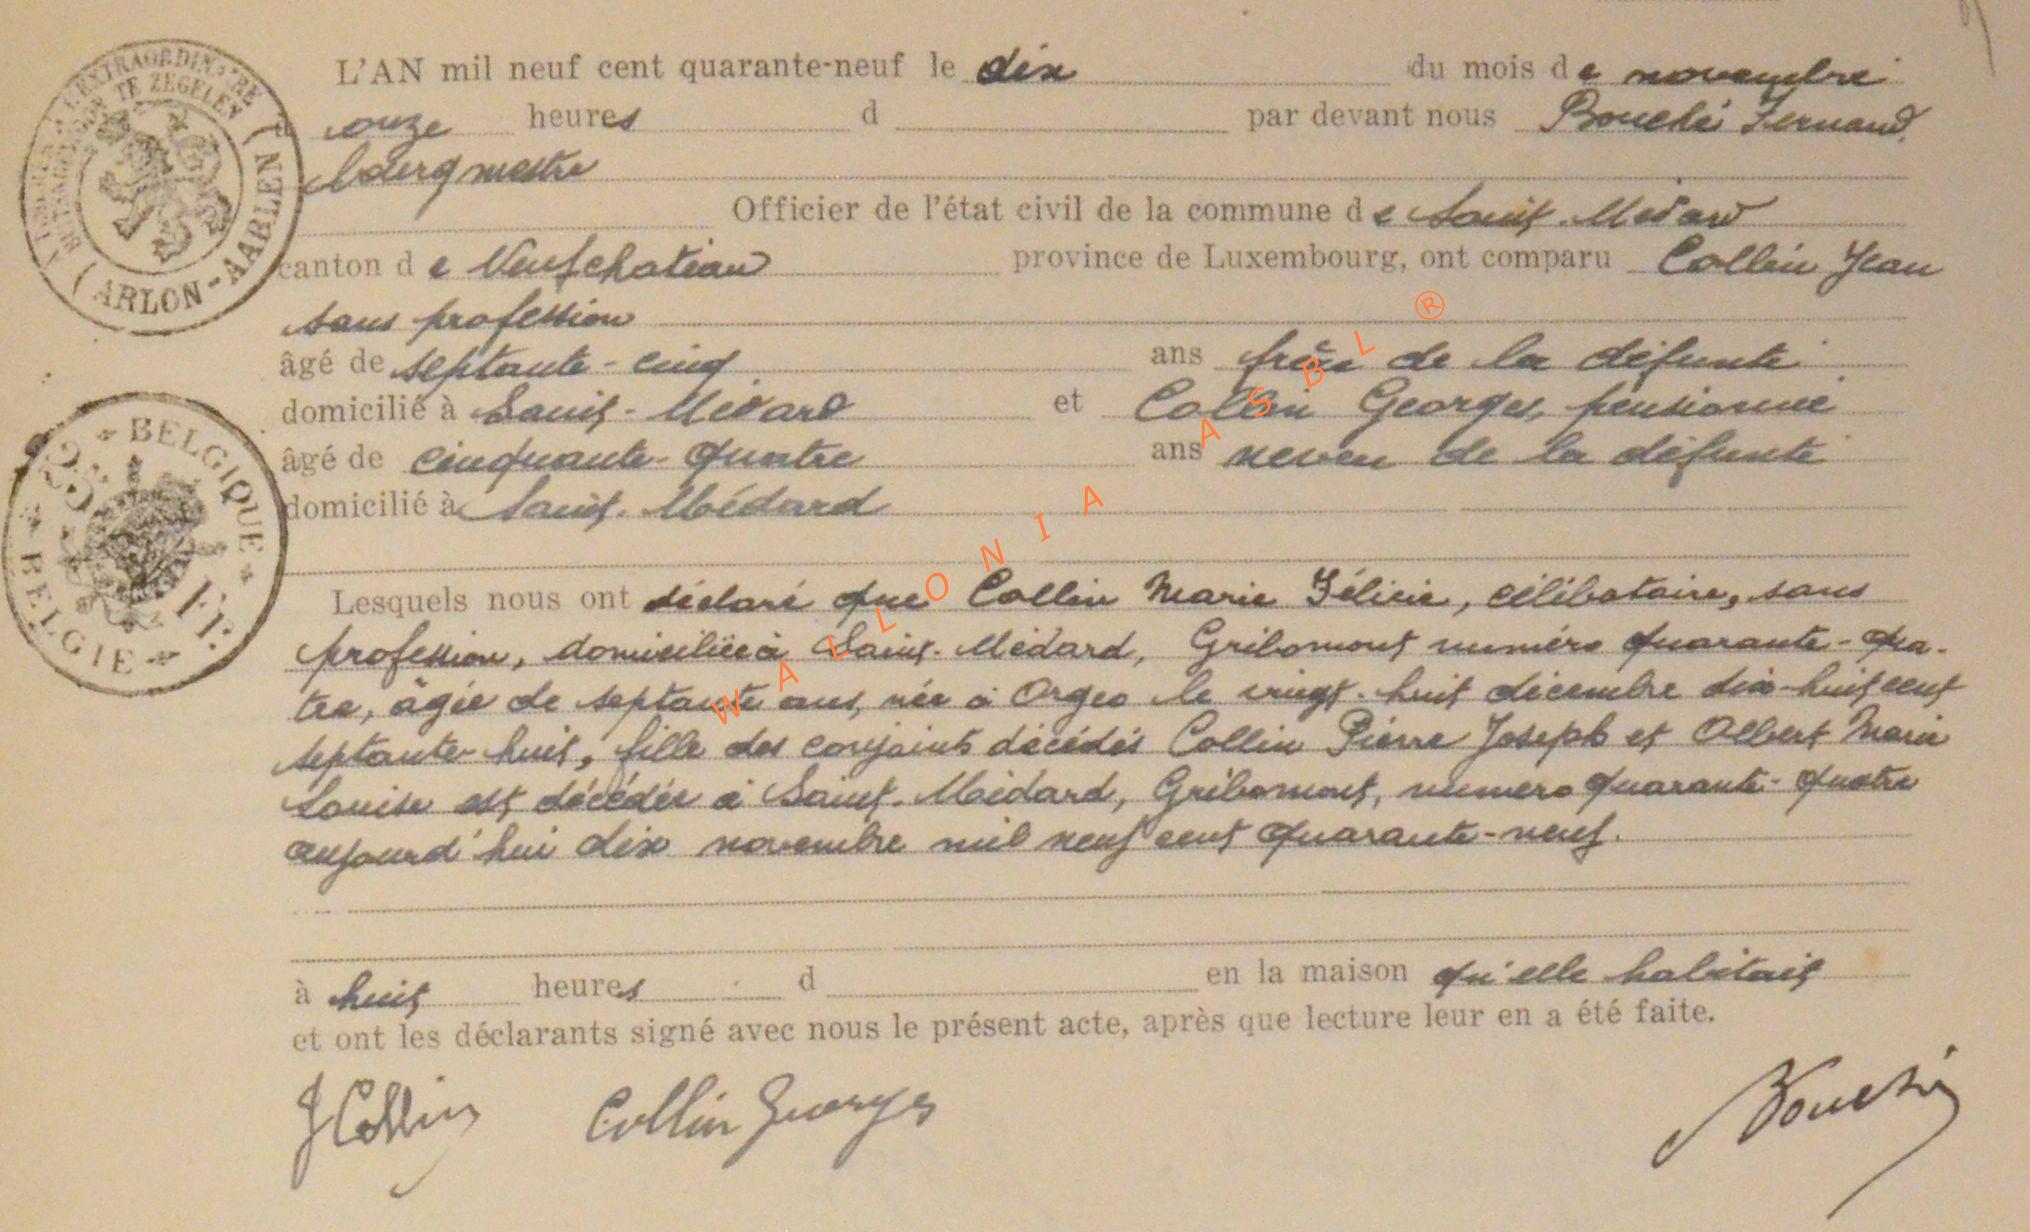 L'AN mil neuf cent quarante-neuf le dix du mois de novembre
à onze heures d par devant nous Bouché Fernand,
bourgmestre
Officier de l'état civil de la commune de Saint-Médard
canton de Neufchateau province de Luxembourg, ont comparu Collin Jean
sans profession
âgé de septante-cinq ans frère de la défunte
domicilié à Saint-Médard et Collin Georges, pensionné
âgé de cinquante-quatre ans neveu de la défunte
domicilié à Saint-Médard
Lesquels nous ont déclaré que Collin Marie Félicie, célibataire, sans
profession, domiciliée à Saint-Médard, Gribomont numéro quarante-qua-
tre, âgée de septante ans, née à Orgeo le vingt-huit décembre dix-huit cent
septante-huit, fille des conjoints décédés Collin Pierre Joseph et Albert Marie
Louise est décédée à Saint-Médard, Gribomont, numéro quarante-quatre
aujourd'hui dix novembre mil neuf cent quarante-neuf.
à huit heures d en la maison qu'elle habitait
et ont les déclarants signé avec nous le présent acte, après que lecture leur en a été faite.
J Collin Collin Georges Bouché
ARLON-AARLEN
BELGIQUE
BELGIE
25 Fr.
WALLONIA ASBL ®